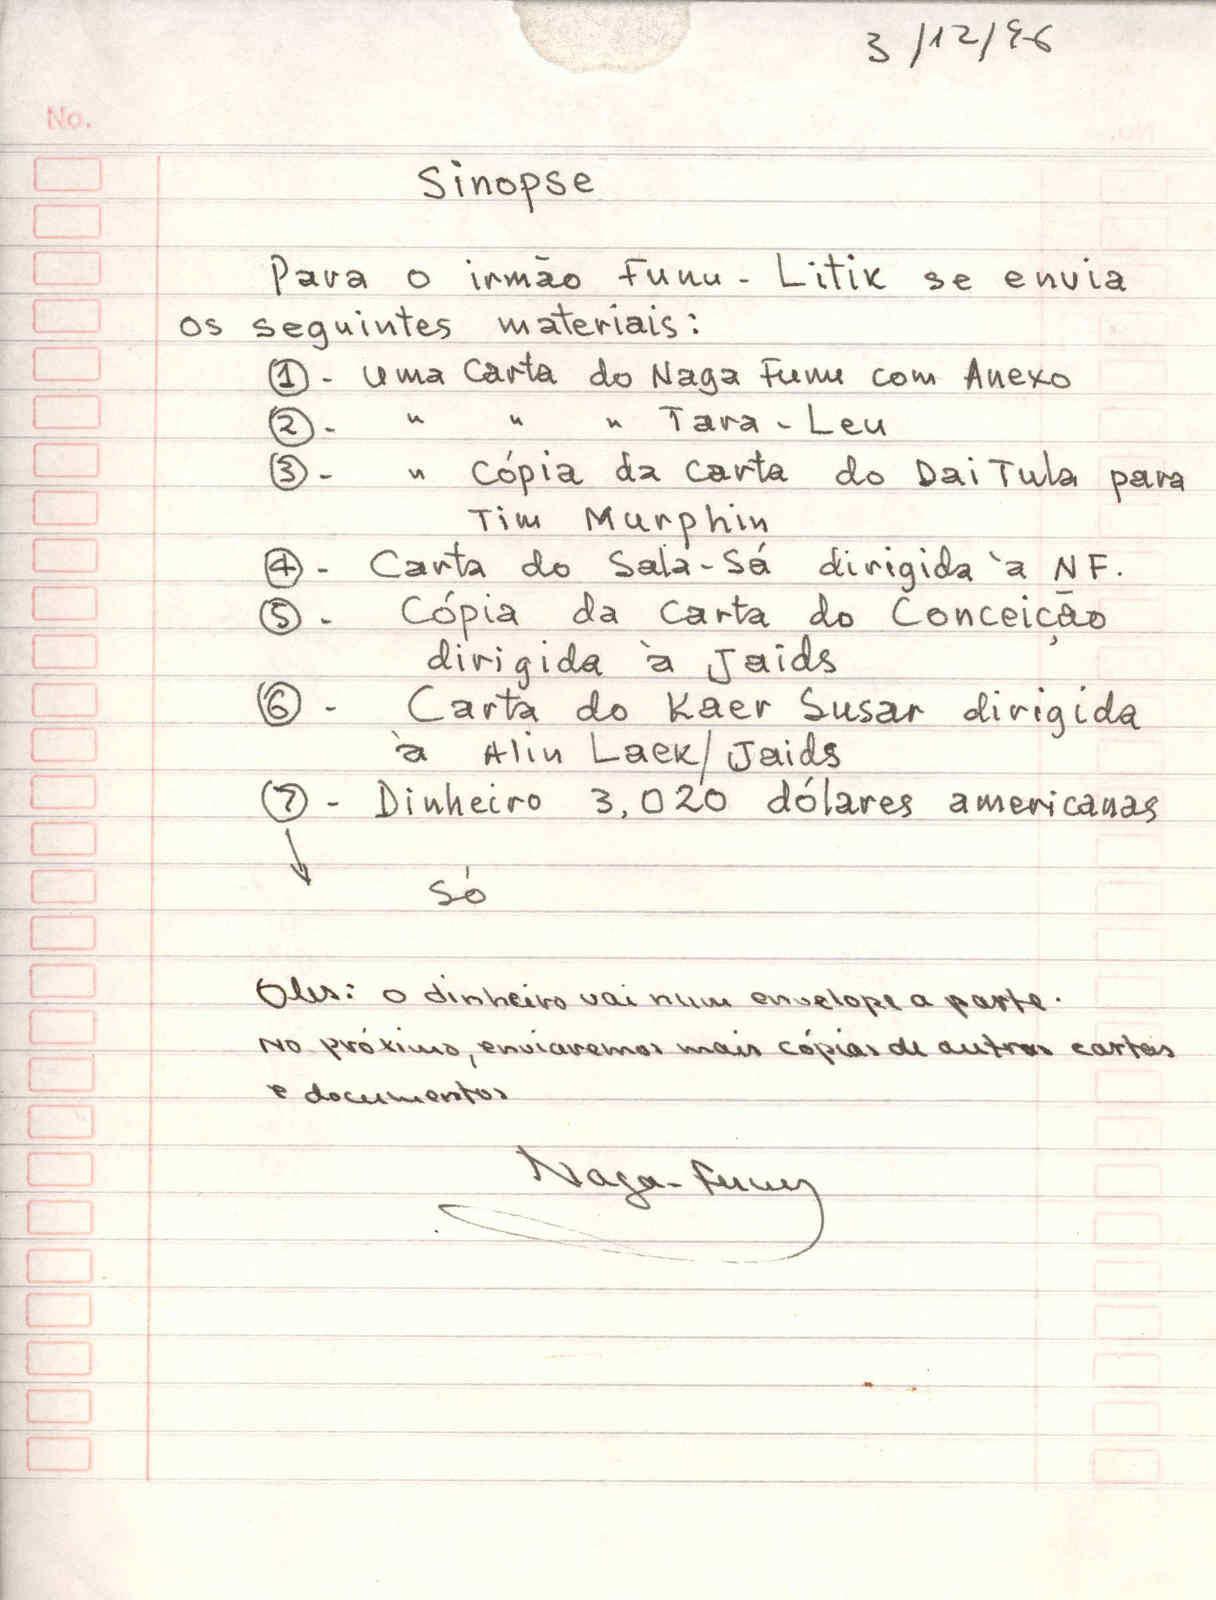 3/12/96
No.
Sinopse
Para o irmão Funu - Litik se envia
os seguintes materiais:
① - uma carta do Naga Funu com Anexo
② - " " " Tara - Leu
③ - " Cópia da carta do Dai Tula para
Tim Murphin
④ - Carta do Sala-Sá dirigida à NF.
⑤ - Cópia da carta do Conceição
dirigida à Jaids
⑥ - Carta do Kaer Susar dirigida
à Alin Laek/Jaids
⑦ - Dinheiro 3,020 dólares americanas
↓
Só
Obs: o dinheiro vai num envelope a parte.
No próximo, enviaremos mais cópias de outras cartas
e documentos
Naga-Funu